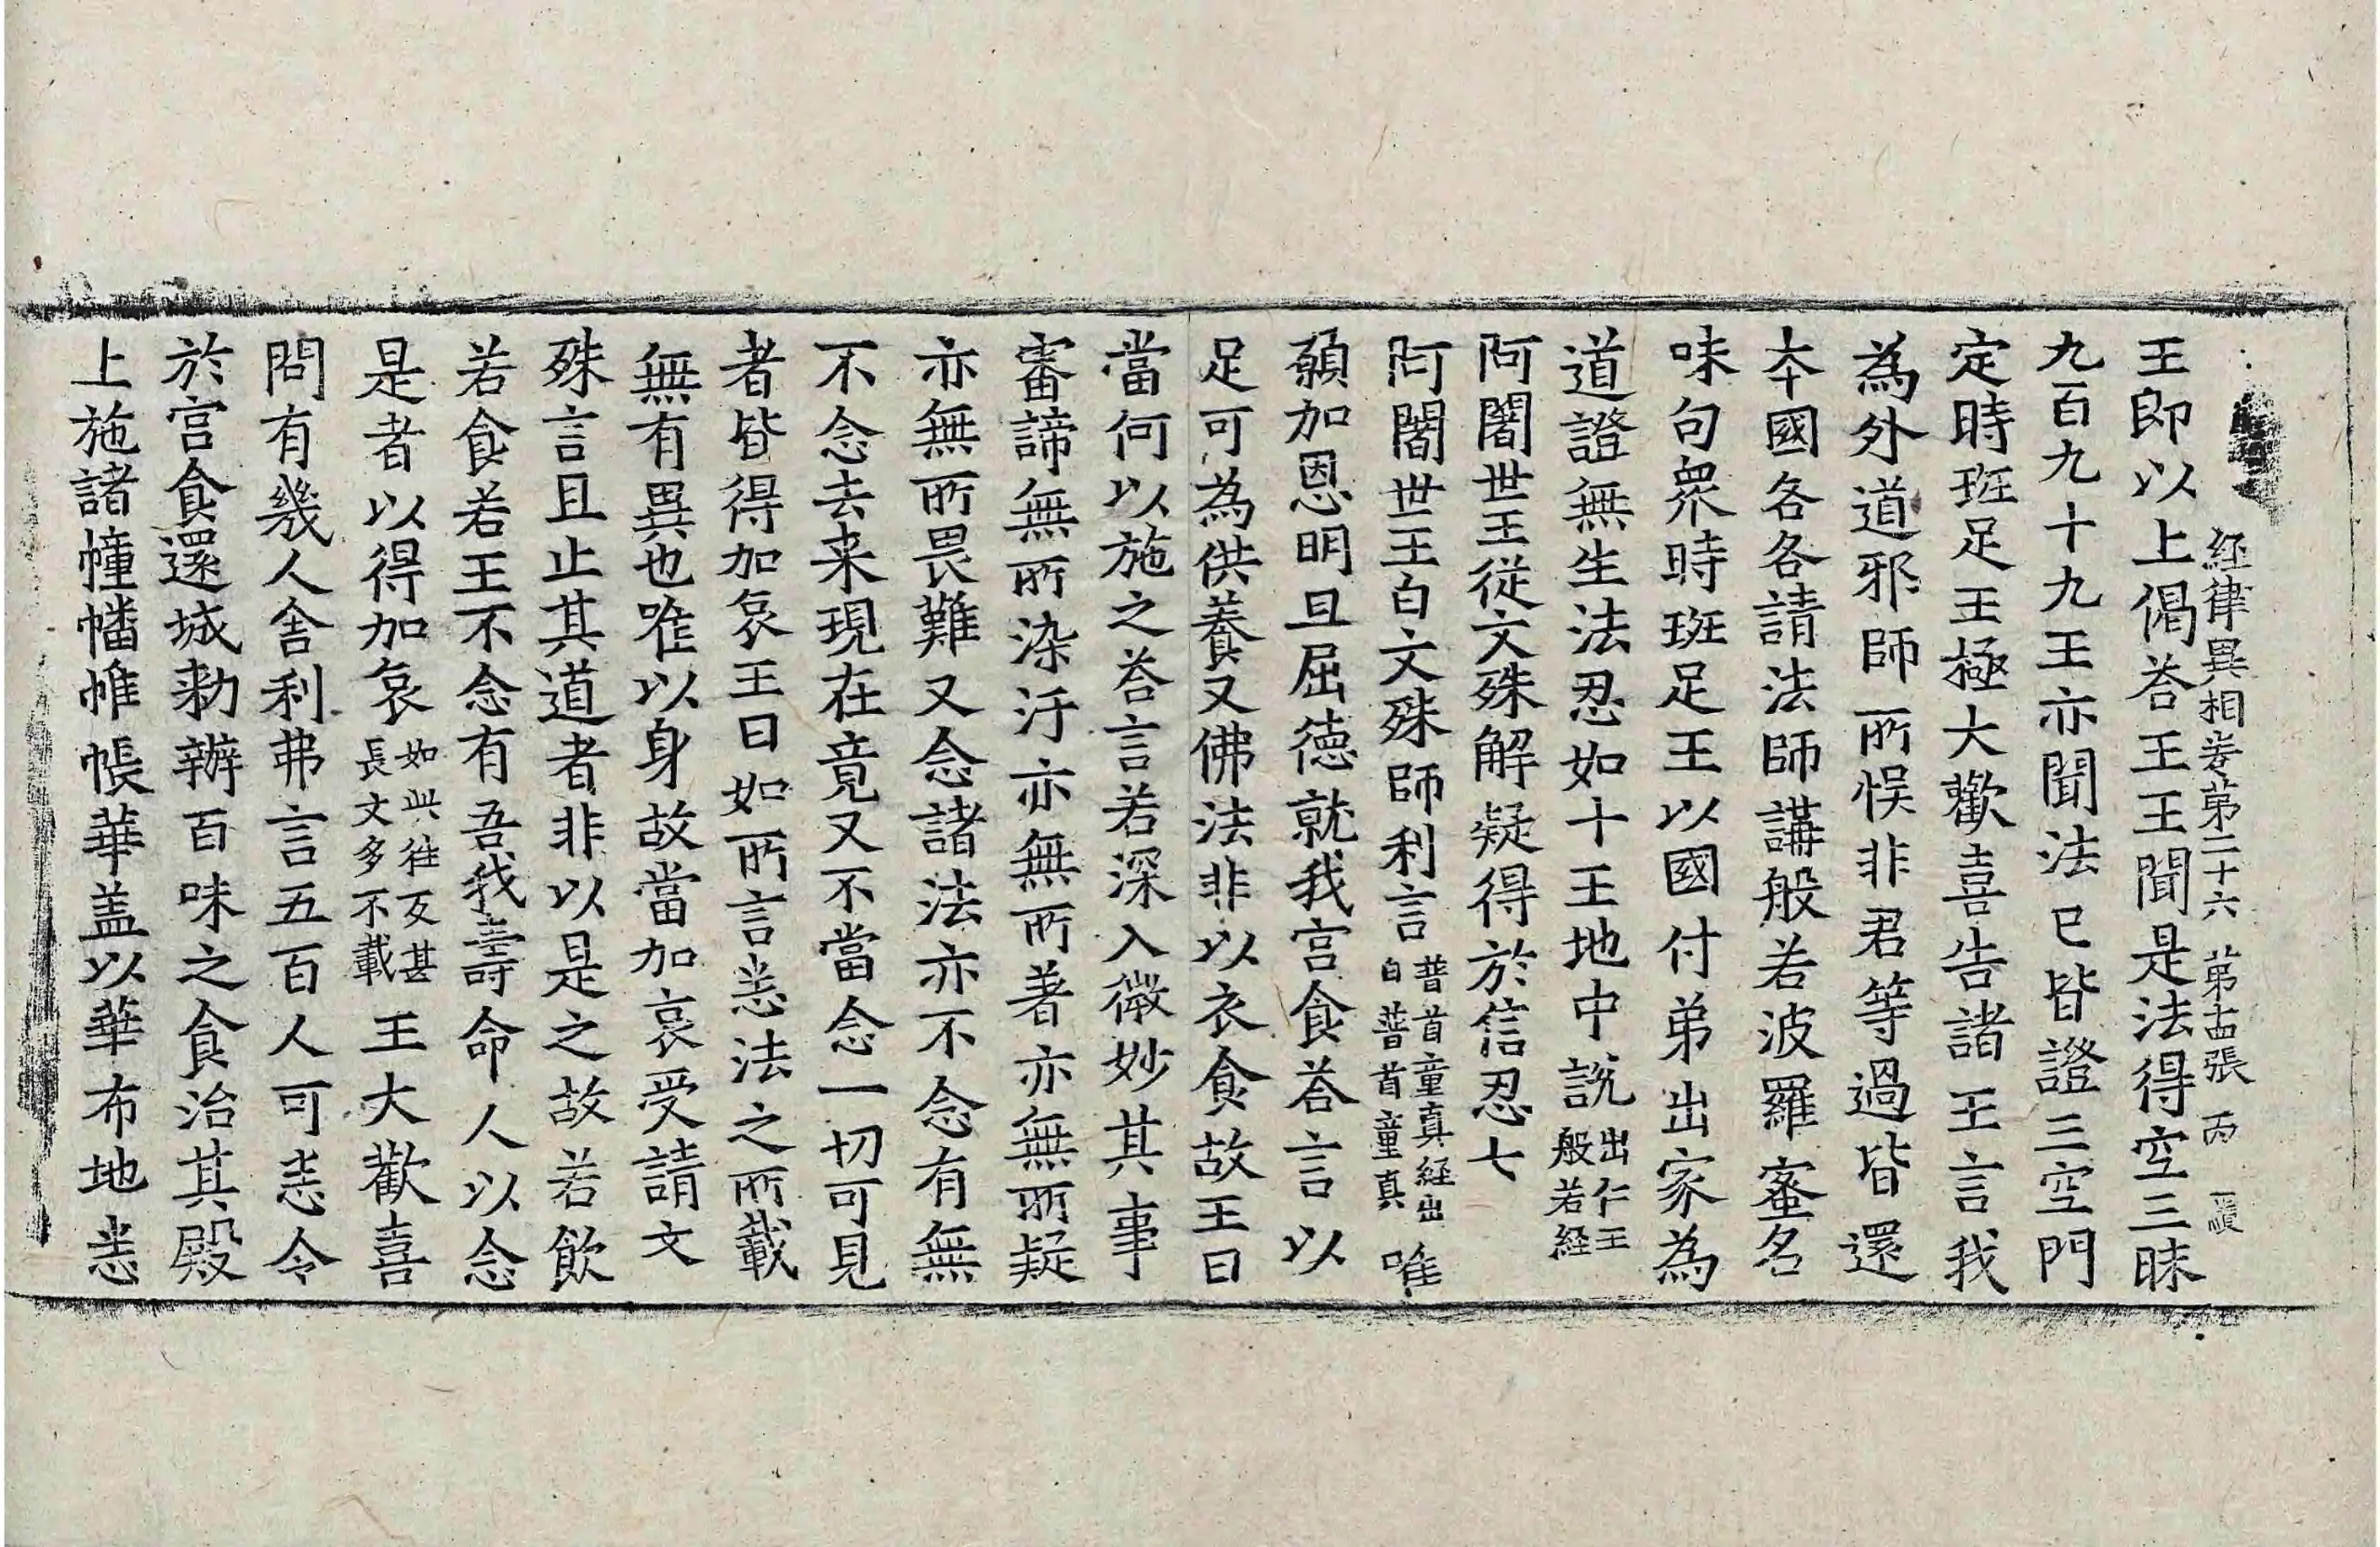 経律異相卷苐二十六 苐十四張 丙
王即以上偈荅王王聞是法得空三昧
九百九十九王亦聞法已皆證三空門
定時班足王極大歡喜告諸王言我
為外道邪師所悮非君等過皆還
夲國各各請法師講般若波羅蜜名
味句衆時班足王以國付弟出家為
道證無生法忍如十王地中說出仁王般若経
阿闍世王從文殊解疑得於信忍七
阿闍世王白文殊師利言普首童真経出自普首童真唯
願加恩明旦屈德就我宮食荅言以
足可為供養又佛法非以衣食故王曰
當何以施之荅言若深入微妙其事
審諦無所染汙亦無所著亦無所疑
亦無所畏難又念諸法亦不念有無
不念去来現在竟又不當念一切可見
者皆得加哀王曰如所言悉法之所載
無有異也唯以身故當加哀受請文
殊言且止其道者非以是之故若飲
若食若王不念有吾我壽命人以念
是者以得加哀如此往反甚長文多不載王大歡喜
問有幾人舎利弗言五百人可悉令
於宮食還城勑辦百味之食治其殿
上施諸幢幡帷帳華盖以華布地悉